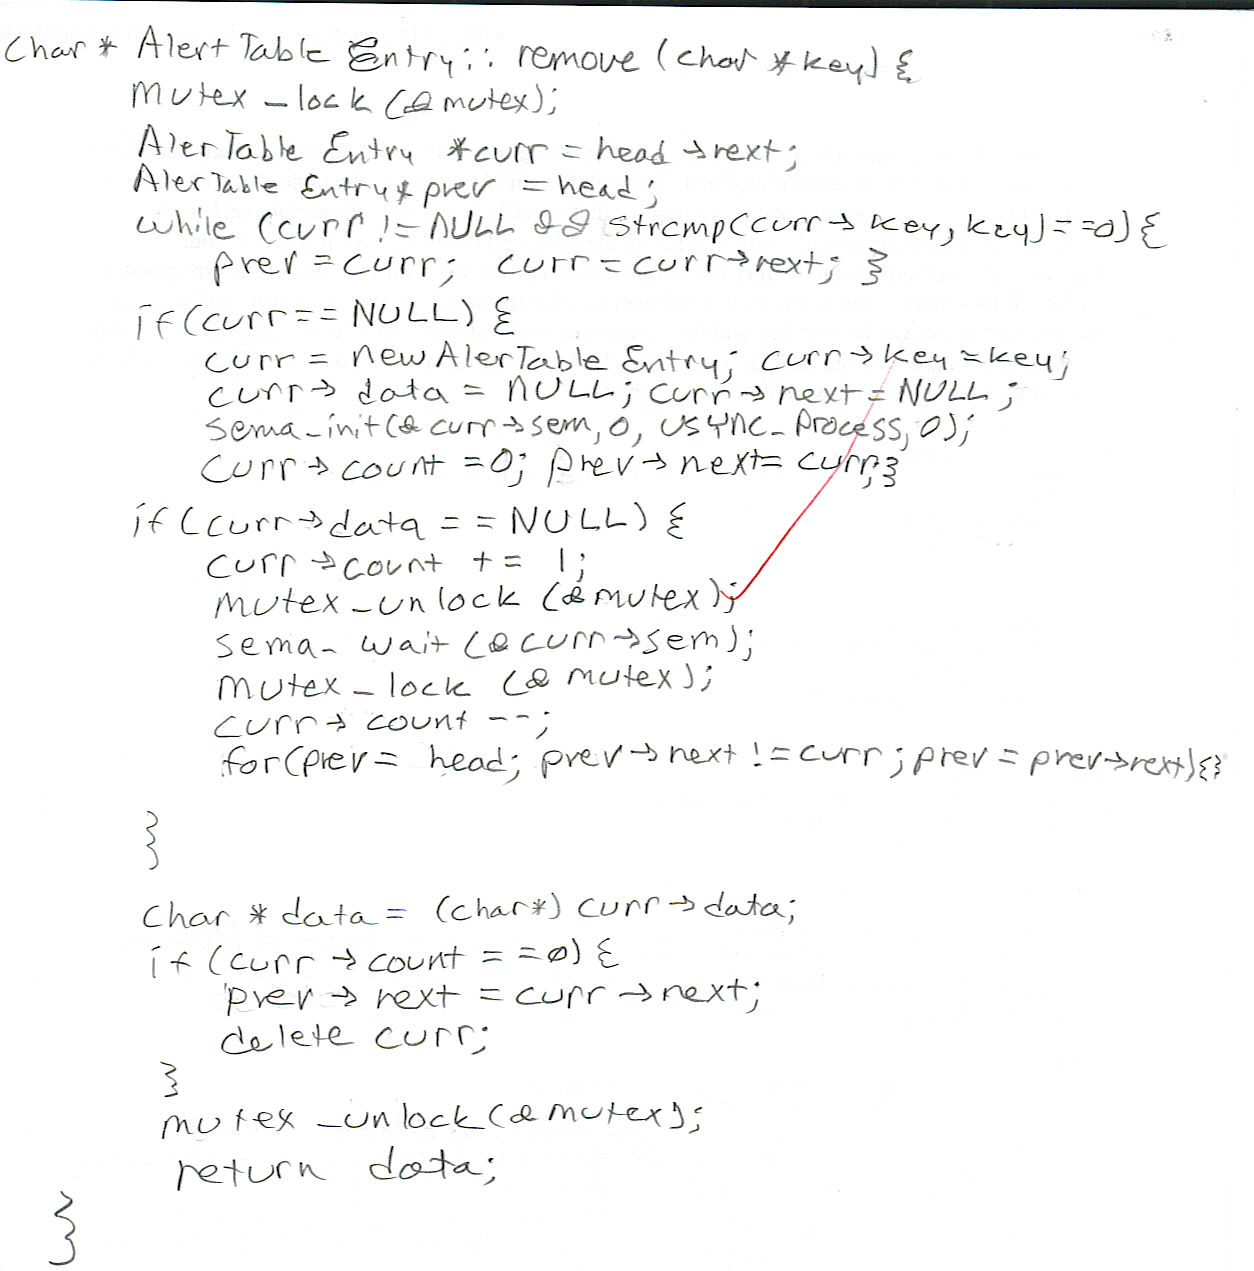 Char * AlertTableEntry:: remove (char *key) {
mutex_lock (&mutex);
AlerTableEntry *curr = head->next;
AlerTableEntry* prev = head;
while (curr != NULL && strcmp(curr->key, key)==0) {
prev = curr; curr = curr->next; }
if (curr == NULL) {
curr = new AlerTableEntry; curr->key = key;
curr->data = NULL; curr->next = NULL;
sema_init(&curr->sem, 0, USYNC_Process, 0);
curr->count = 0; prev->next = curr;}
if (curr->data == NULL) {
curr->count += 1;
mutex_unlock (&mutex);
sema_wait (&curr->sem);
mutex_lock (&mutex);
curr->count --;
for(prev = head; prev->next != curr; prev = prev->next){}
}
char * data = (char*) curr->data;
if (curr->count == 0) {
prev->next = curr->next;
delete curr;
}
mutex_unlock(&mutex);
return data;
}